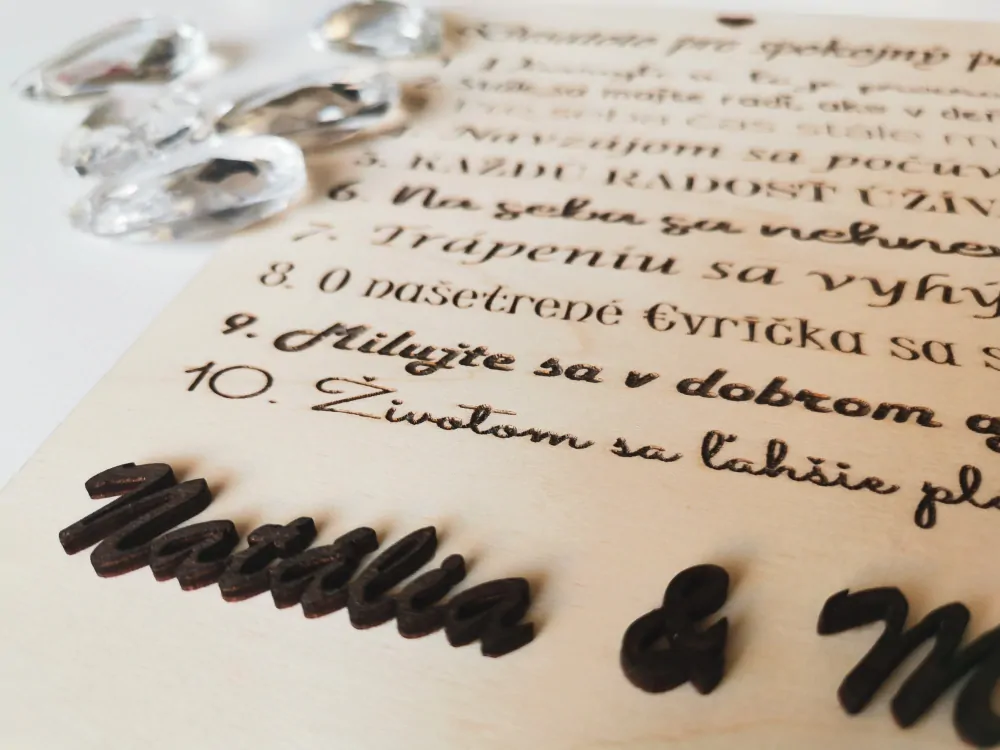 pre spokojný
majte radi, ako v deň
čas stále
Navzájom sa počúv
5. KAŽDÚ RADOSŤ UŽÍV
6. Na seba sa nehne
7. Trápeniu sa vyhý
8. O našetrené €vríčka sa s
9. Milujte sa v dobrom
10. Životom sa ľahšie plá
Natália & M